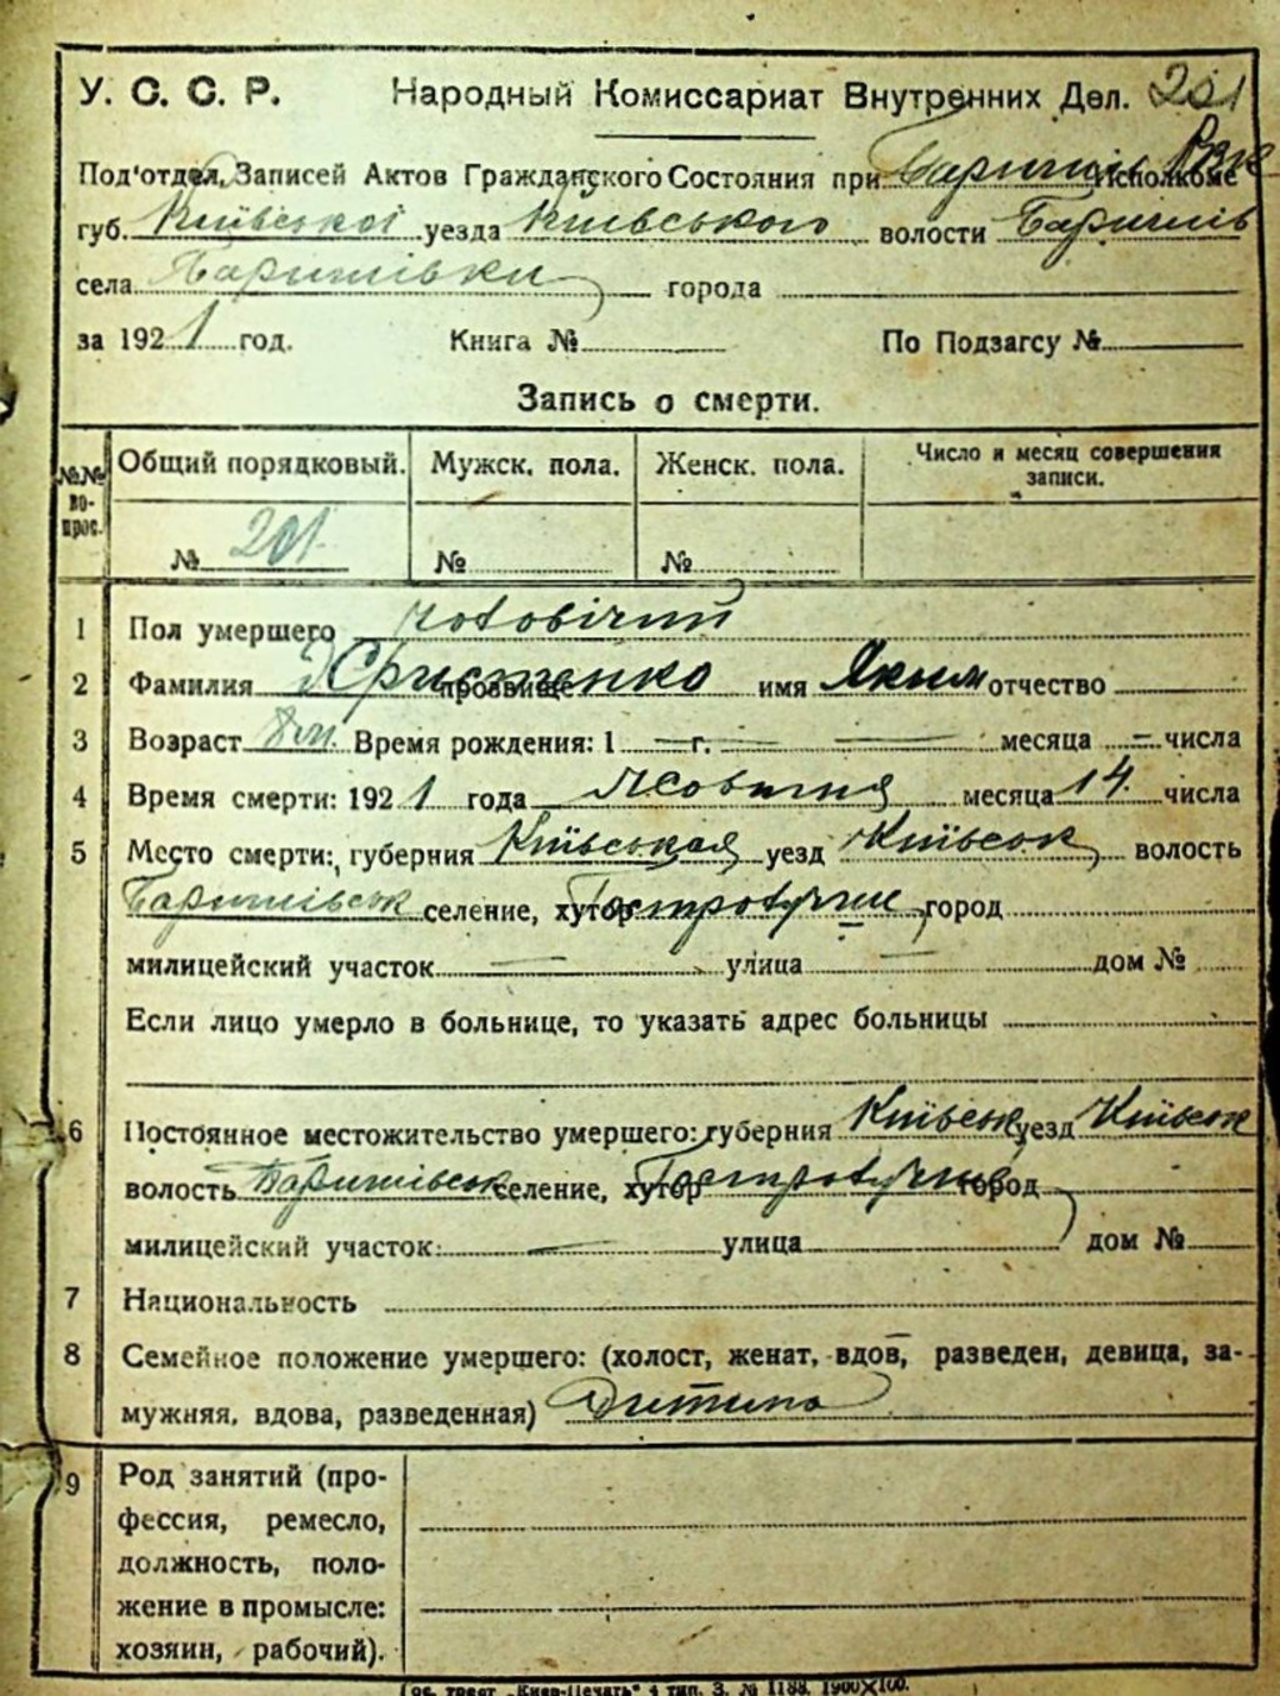 У. С. С. Р. Народный Комиссариат Внутренних Дел. 201
Под'отдел, Записей Актов Гражданского Состояния при Баришів РВК Исполкоме
губ. Київської уезда Київського волости Баришів
села Баришівки города
за 1921 год. Книга № По Подзагсу №
Запись о смерти.
№№ вопрос. Общий порядковый. Мужск. пола. Женск. пола. Число и месяц совершения записи.
№ 201 № №
1 Пол умершего чоловічий
2 Фамилия прозвище имя Яким отчество
3 Возраст Время рождения: 1 — г. — — месяца — числа
4 Время смерти: 1921 года Жовтня месяца 14 числа
5 Место смерти: губерния Київськая уезд Київськ волость
Баришівськ селение, хутор Гостролуччє город
милицейский участок — улица — дом №
Если лицо умерло в больнице, то указать адрес больницы
6 Постоянное местожительство умершего: губерния Київськ уезд Київськ
волость Баришівськ селение, хутор Гостролуччє город
милицейский участок: — улица дом №
7 Национальность
8 Семейное положение умершего: (холост, женат, вдов, разведен, девица, за-
мужняя, вдова, разведенная) Дитина
9 Род занятий (про-
фессия, ремесло,
должность, поло-
жение в промысле:
хозяин, рабочий).
Гос. трест „Киев-Печать" 4 тип. З. № 1188. 1900×100.